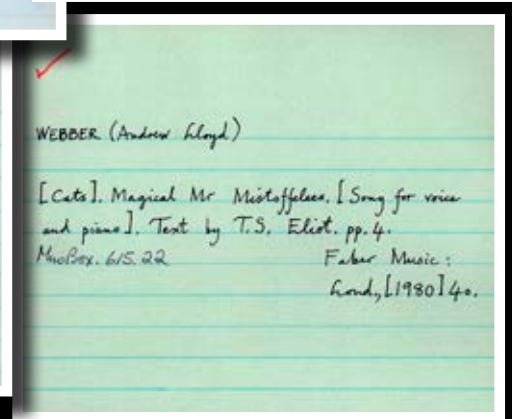 WEBBER (Andrew Lloyd)
[Cats]. Magical Mr Mistoffelees. [Song for voice
and piano]. Text by T.S. Eliot. pp. 4.
MusBox. 615.22
Faber Music:
Lond, [1980] 4o.